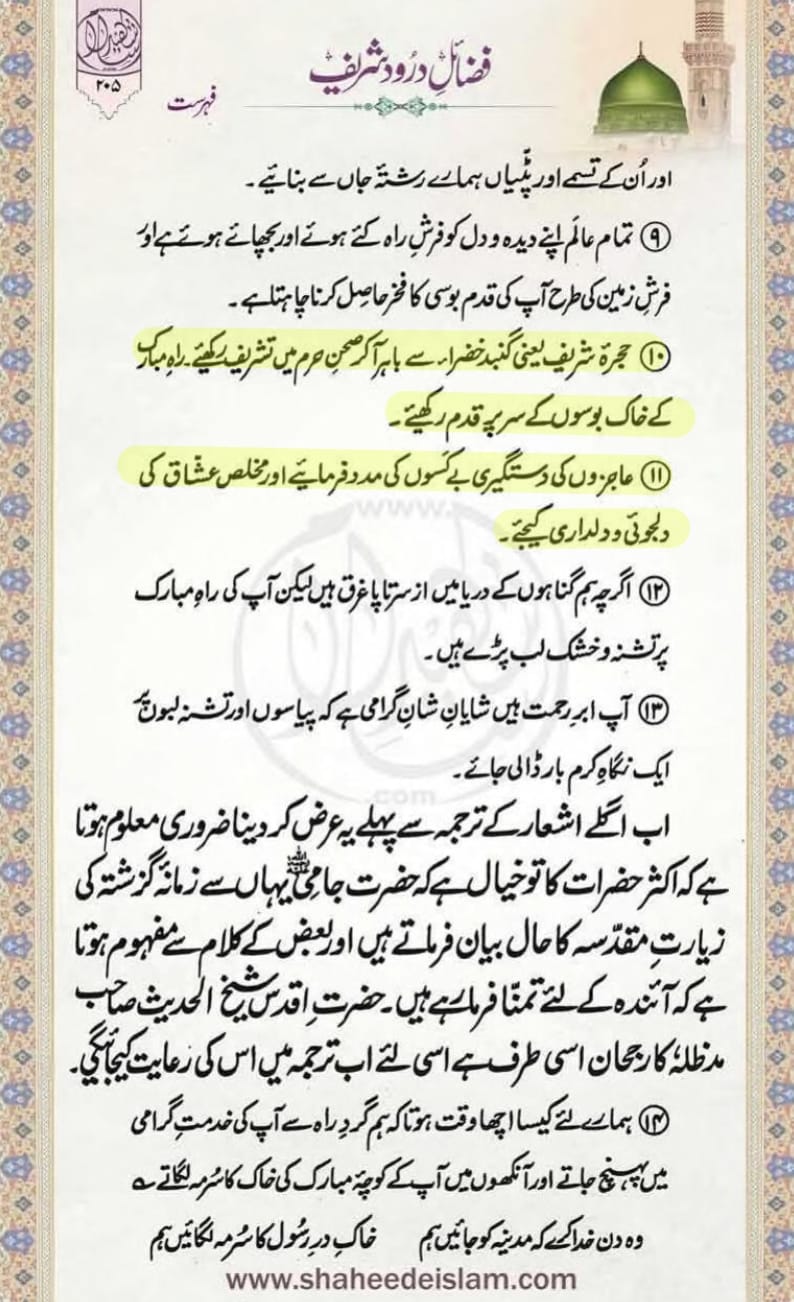 فضائلِ درُود شریف
۲۰۵
فہرست
اور اُن کے تسمے اور پٹّیاں ہمارے رشتۂ جاں سے بنائیے ۔
⑨ تمام عالَم اپنے دیدہ و دل کو فرشِ راہ کئے ہوئے اور بچھائے ہوئے ہے اور
فرشِ زمین کی طرح آپ کی قدم بوسی کا فخر حاصِل کرنا چاہتا ہے ۔
⑩ حجرۂ شریف یعنی گنبدِ خضراء سے باہر آکر صحنِ حرم میں تشریف رکھیئے ۔ راہِ مبارک
کے خاک بوسوں کے سر پر قدم رکھیئے ۔
⑪ عاجزوں کی دستگیری بے کَسوں کی مدد فرمائیے اور مخلص عشّاق کی
دلجوئی و دلداری کیجئے ۔
⑫ اگرچہ ہم گناہوں کے دریا میں از سرتا پا غرق ہیں لیکن آپ کی راہِ مبارک
پر تشنہ و خشک لب پڑے ہیں ۔
⑬ آپ ابرِ رحمت ہیں شایانِ شانِ گرامی ہے کہ پیاسوں اور تشنہ لبوں پر
ایک نگاہِ کرم بار ڈالی جائے ۔
اب اگلے اشعار کے ترجمہ سے پہلے یہ عرض کر دینا ضروری معلوم ہوتا
ہے کہ اکثر حضرات کا تو خیال ہے کہ حضرت جامیؒ یہاں سے زمانۂ گزشتہ کی
زیارتِ مقدّسہ کا حال بیان فرماتے ہیں اور بعض کے کلام سے مفہوم ہوتا
ہے کہ آئندہ کے لئے تمنّا فرما رہے ہیں ۔ حضرتِ اقدس شیخ الحدیث صاحب
مدظلہٗ کا رجحان اسی طرف ہے اسی لئے اب ترجمہ میں اس کی رعایت کیجائیگی ۔
⑭ ہمارے لئے کیسا اچھا وقت ہوتا کہ ہم گردِ راہ سے آپ کی خدمتِ گرامی
میں پہنچ جاتے اور آنکھوں میں آپ کے کوچۂ مبارک کی خاک کا سُرمہ لگاتے ؎
وہ دن خدا کرے کہ مدینہ کو جائیں ہم خاکِ درِ رسُول کا سُرمہ لگائیں ہم
www.shaheedeislam.com